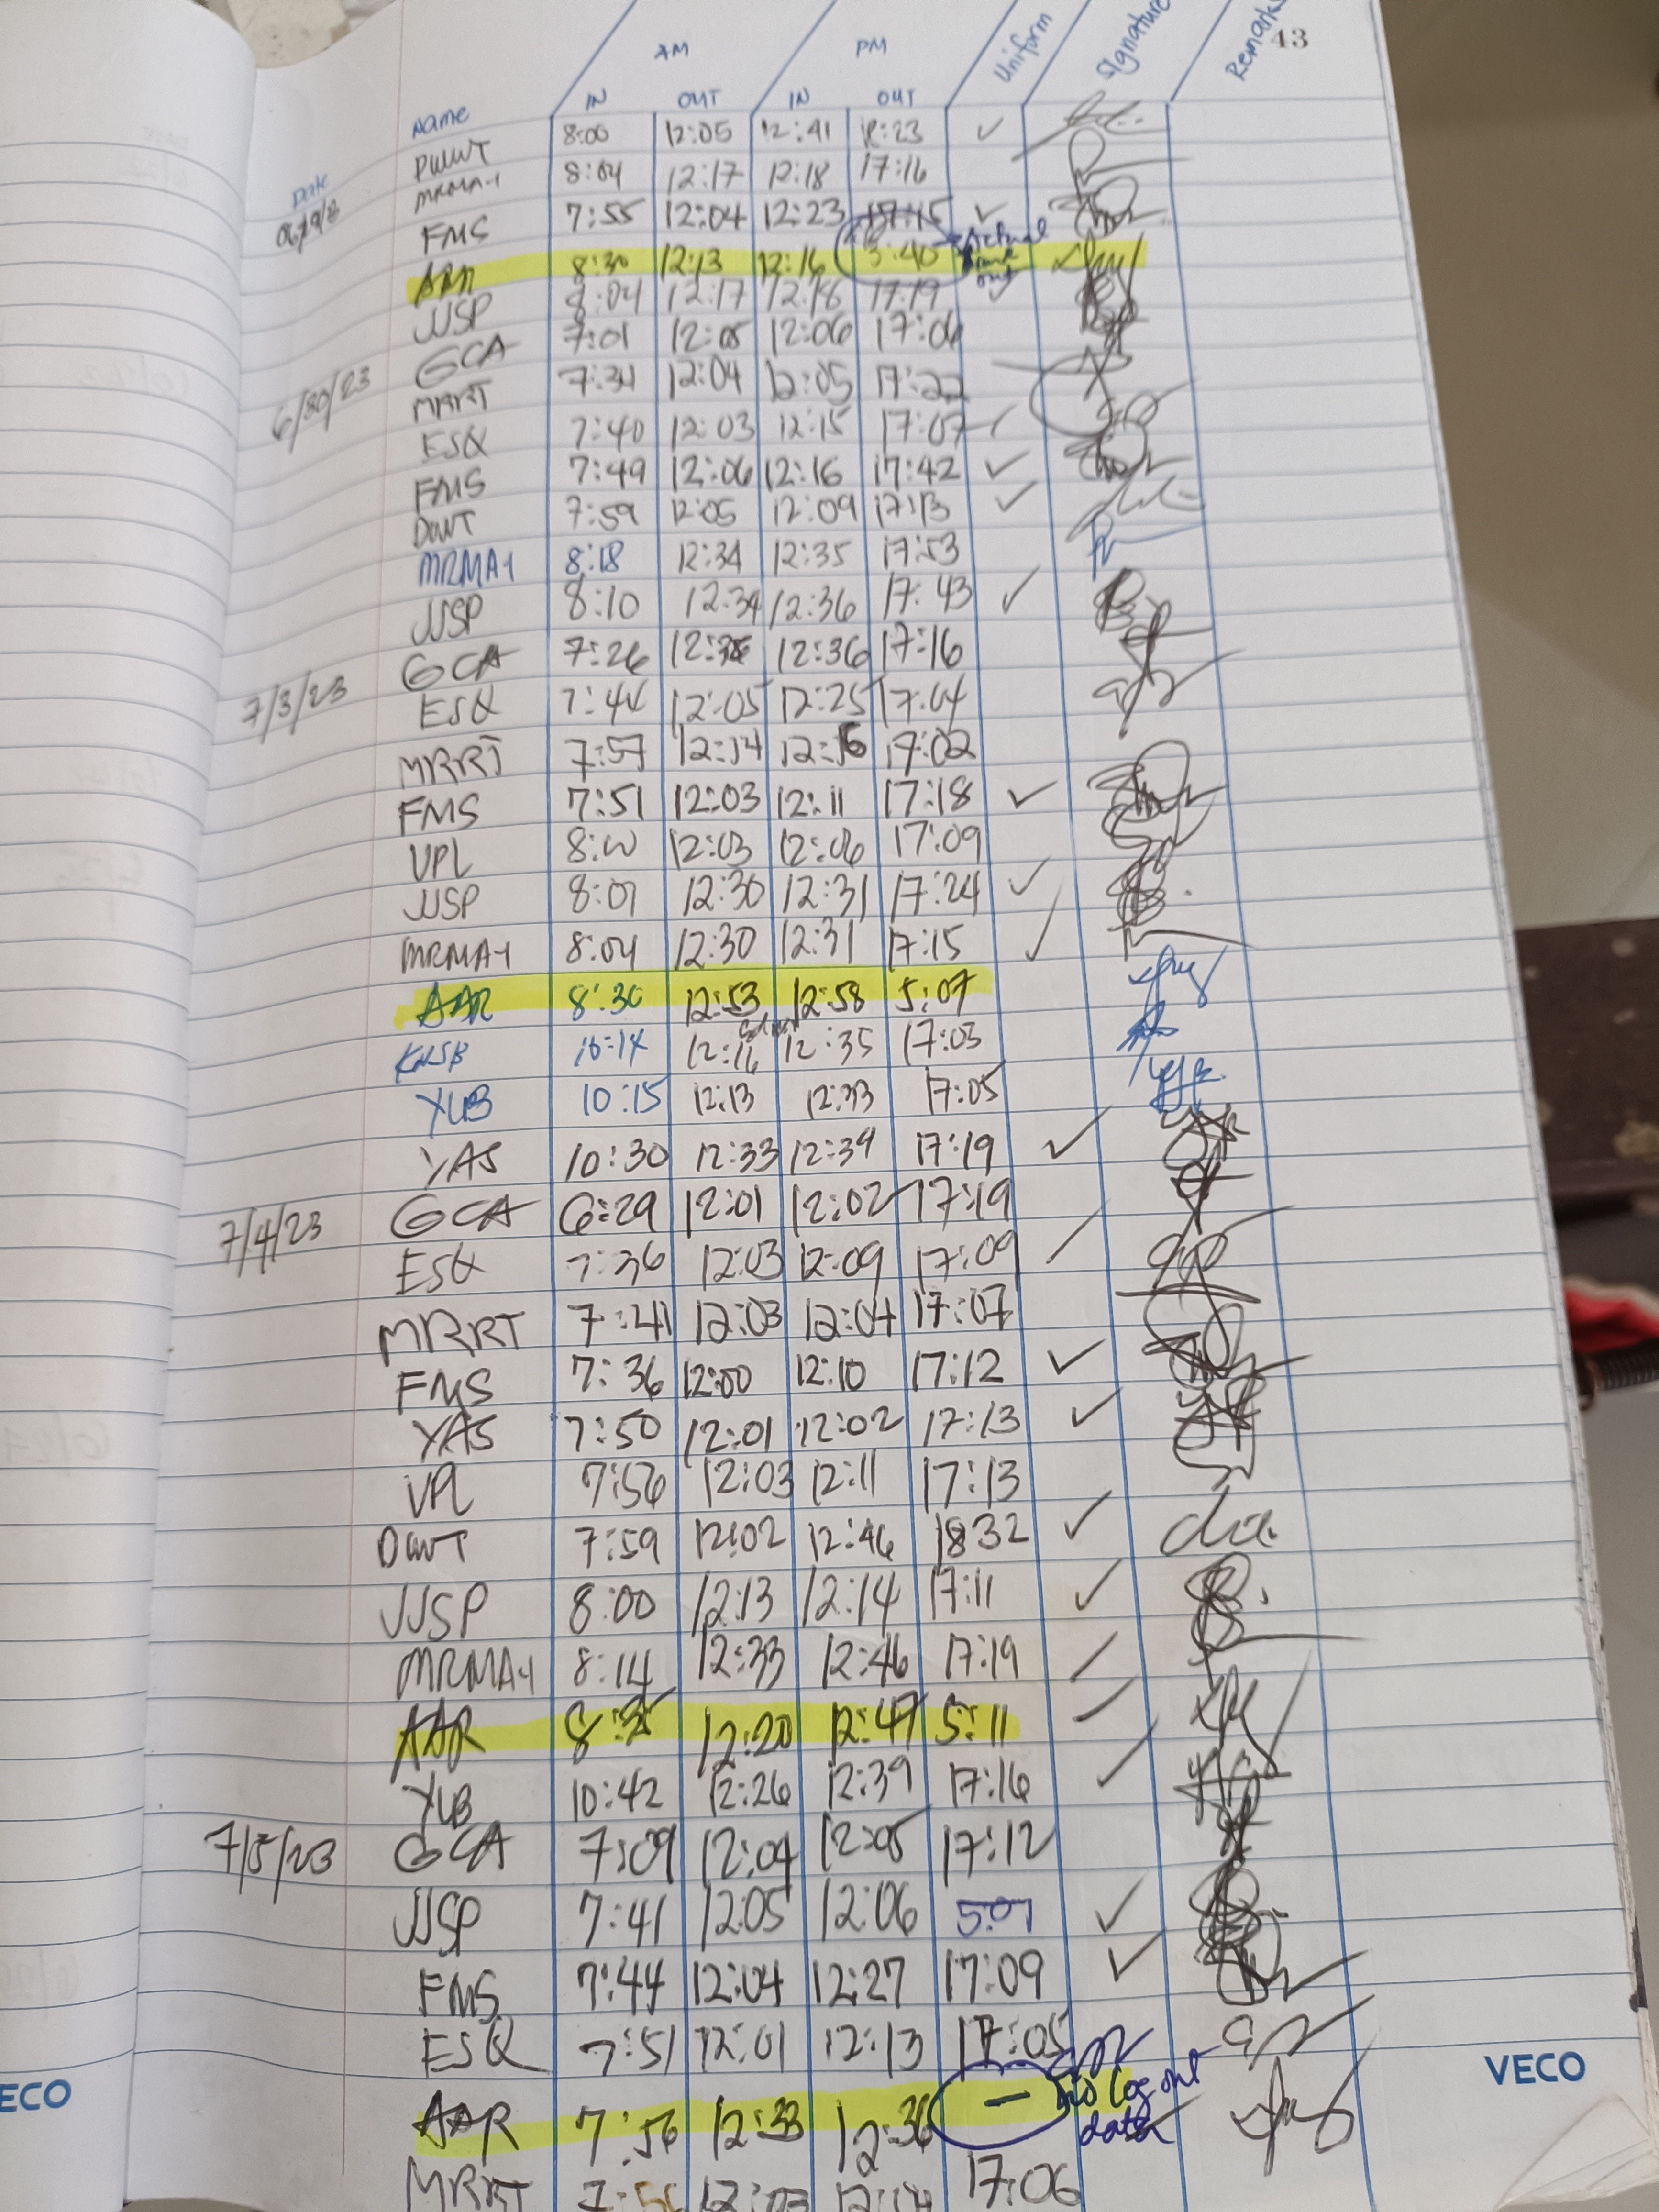 43
AM PM Uniform Signature Remarks
Date Name IN OUT IN OUT
8:00 12:05 12:41 ✓
MRMA-1 8:04 12:17 12:18 17:16
FMS 7:55 12:04 12:23 17:15 ✓
8:30 12:13 12:16 5:40 actual time out
JJSP 8:04 12:17 12:18 17:19 ✓
6/30/23 GCA 7:01 12:05 12:06 17:06
MRRT 7:34 12:04 12:05 17:22
ESQ 7:40 12:03 12:15 17:07
FMS 7:49 12:06 12:16 17:42 ✓
DWT 7:59 12:05 12:09 17:13 ✓
MRMA-1 8:18 12:34 12:35 17:53
JJSP 8:10 12:34 12:36 17:43 ✓
7/3/23 GCA 7:26 12:36 17:16
ESQ 7:44 12:05 12:25 17:04
MRRT 7:57 12:14 17:02
FMS 7:51 12:03 12:11 17:18 ✓
VPL 8:00 12:03 12:06 17:09
JJSP 8:07 12:30 12:31 17:24 ✓
MRMA-1 8:04 12:30 12:31 17:15 ✓
AAR 8:30 12:53 12:58 5:07
12:16 12:35 17:03
YUB 10:15 12:13 12:33 17:05
YAS 10:30 12:33 12:39 17:19 ✓
7/4/23 GCA 6:29 12:01 12:02 17:19
ESQ 7:36 12:03 12:09 17:09
MRRT 7:41 12:03 12:04 17:07
FMS 7:36 12:00 12:10 17:12 ✓
YAS 7:50 12:01 12:02 17:13 ✓
VPL 7:56 12:03 12:11 17:13
DWT 7:59 12:02 12:46 18:32 ✓
JJSP 8:00 12:13 12:14 17:11 ✓
MRMA-1 8:14 12:33 12:46 17:19
AAR 12:20 12:47 5:11
YUB 10:42 12:26 12:39 17:16 ✓
7/5/23 GCA 7:09 12:04 12:05 17:12
JJSP 7:41 12:05 12:06 5:07 ✓
FMS 7:44 12:04 12:27 17:09 ✓
ESQ 7:51 12:01 12:13 17:05
AAR 7:56 12:33 12:36 — No log out data
MRRT 12:03 12:04 17:06
ECO VECO